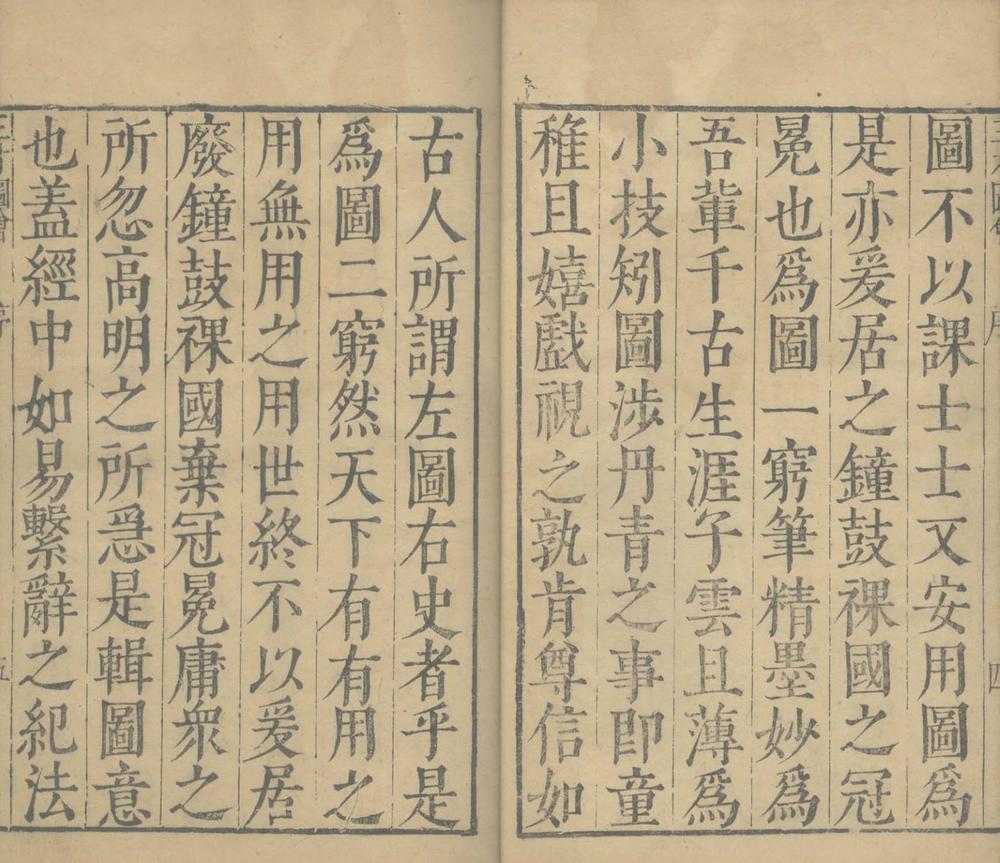 圖不以課士士又安用圖爲
是亦爰居之鐘鼓裸國之冠
冕也爲圖一窮筆精墨妙爲
吾輩千古生涯子雲且薄爲
小技矧圖涉丹青之事即童
稚且嬉戲視之孰肯尊信如
古人所謂左圖右史者乎是
爲圖二窮然天下有有用之
用無用之用世終不以爰居
廢鐘鼓裸國棄冠冕庸衆之
所忽高明之所急是輯圖意
也蓋經中如易繫辭之紀法